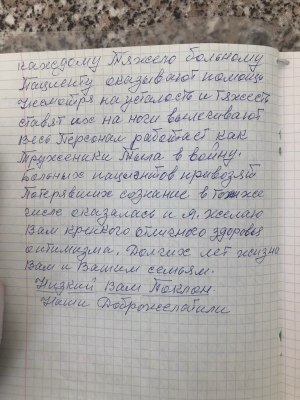 каждому Тяжело больному
Пациенту оказывают помощь
Несмотря на усталость и Тяжесть
ставят их на ноги вылечивают
Весь Персонал работает как
Труженики Тыла в войну.
Больных пациентов привозят
Потерявших сознание в том же
числе оказалась и Я. желаю
Вам крепкого отличного здоровья
оптимизма. Долгих лет жизни
Вам и Вашим семьям.
Низкий Вам Поклон.
Наши Доброжелатили